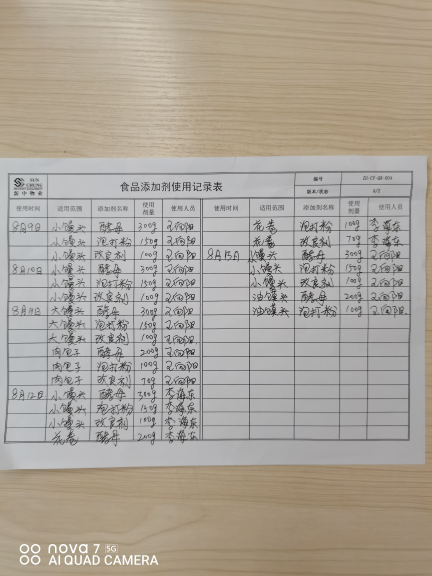 SUN CHUNG
新中物业
食品添加剂使用记录表
编号 ZD-CF-QR-004
版本/状态 A/0
使用时间 适用范围 添加剂名称 使用剂量 使用人员 使用时间 适用范围 添加剂名称 使用剂量 使用人员
8月9日 小馒头 酵母 300g 王向阳 花卷 泡打粉 100g 李海东
小馒头 泡打粉 150g 王向阳 花卷 改良剂 70g 李海东
小馒头 改良剂 100g 王向阳 8月15日 小馒头 酵母 300g 王向阳
8月10日 小馒头 酵母 300g 王向阳 小馒头 泡打粉 150g 王向阳
小馒头 泡打粉 150g 王向阳 小馒头 改良剂 100g 王向阳
小馒头 改良剂 100g 王向阳 油馒头 酵母 200g 王向阳
8月11日 大馒头 酵母 300g 王向阳 油馒头 泡打粉 100g 王向阳
大馒头 泡打粉 150g 王向阳
大馒头 改良剂 100g 王向阳
肉包子 酵母 200g 王向阳
肉包子 泡打粉 100g 王向阳
肉包子 改良剂 70g 王向阳
8月12日 小馒头 酵母 300g 李海东
小馒头 泡打粉 150g 李海东
小馒头 改良剂 100g 李海东
花卷 酵母 200g 李海东
nova 7 5G
AI QUAD CAMERA